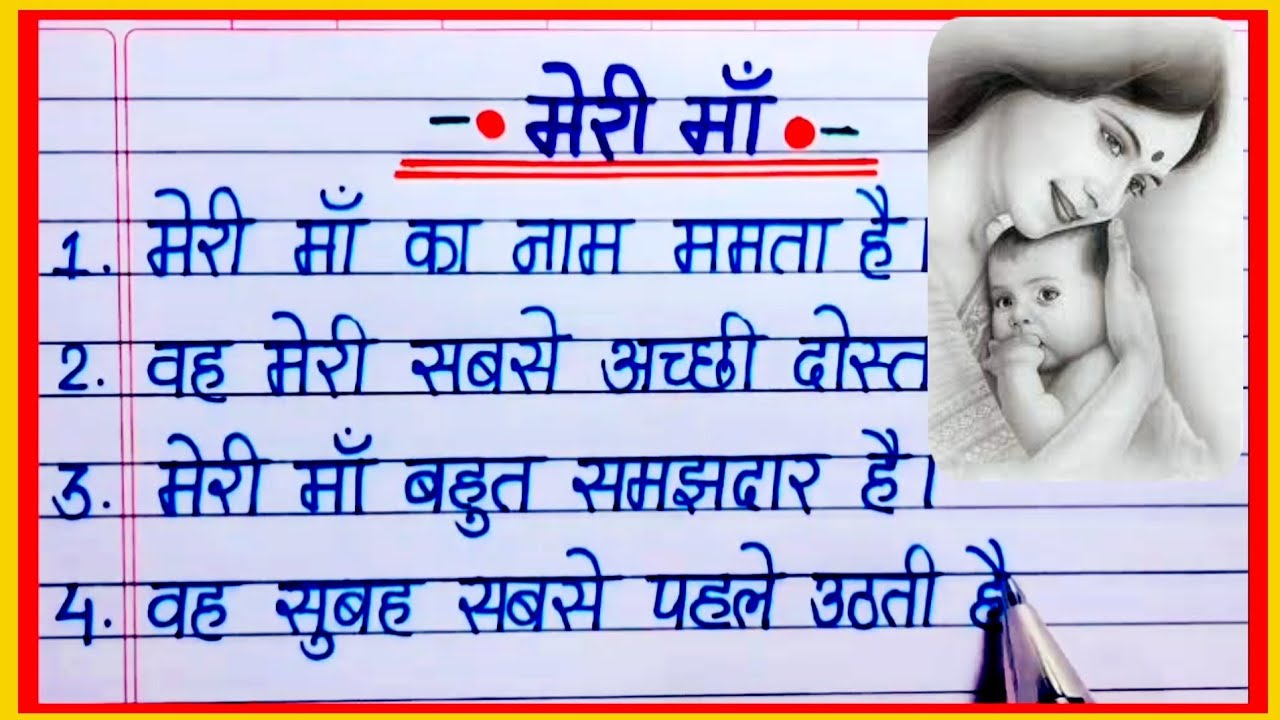 मेरी माँ
1. मेरी माँ का नाम ममता है।
2. वह मेरी सबसे अच्छी दोस्त
3. मेरी माँ बहुत समझदार है।
4. वह सुबह सबसे पहले उठती है